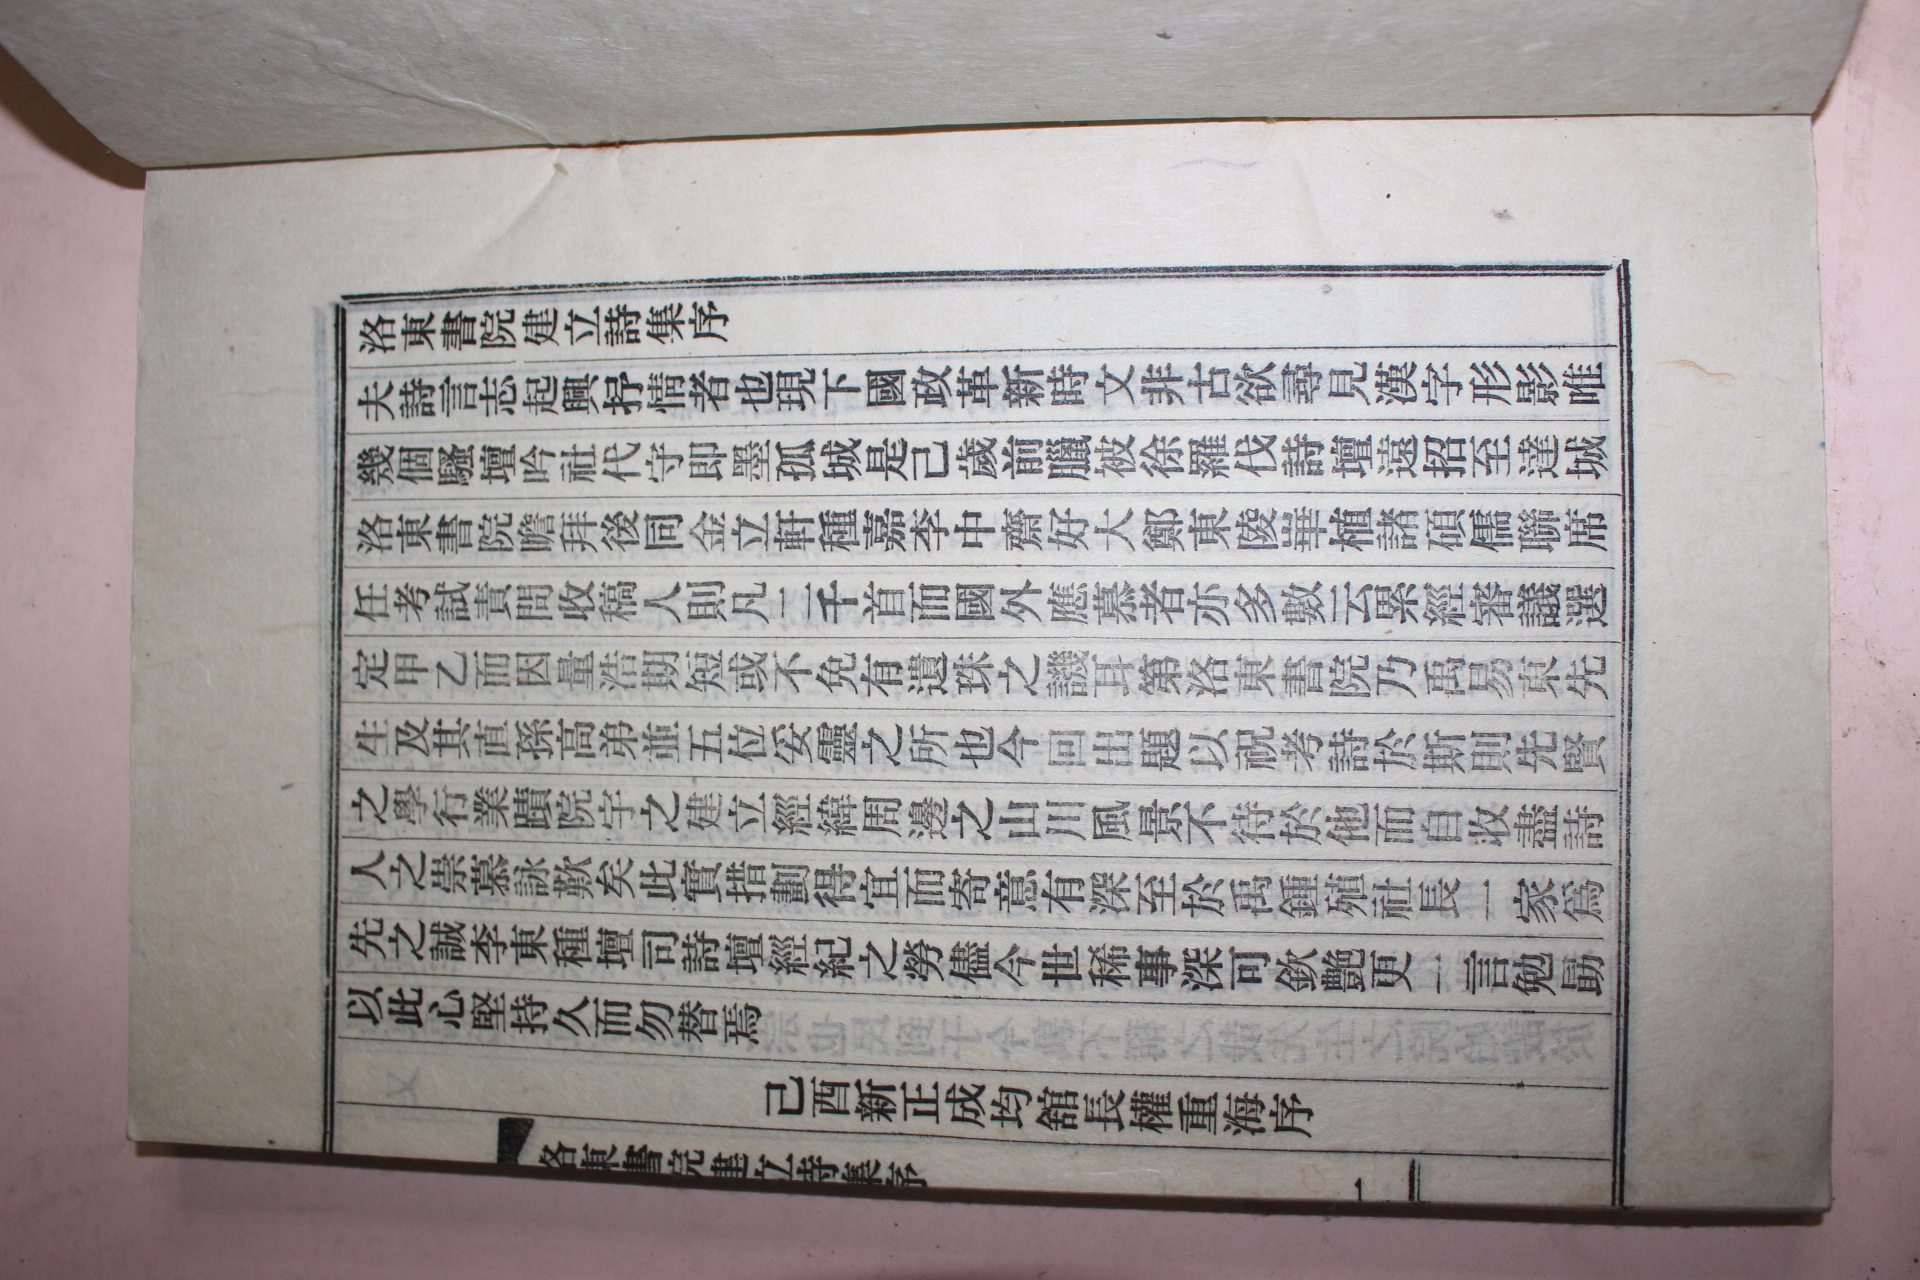 洛東書院建立詩集序
夫詩言志起興抒情者也現下國政革新時文非古欲尋見漢字形影唯
幾個騷壇吟社代守即墨孤城是已歲前臘被徐羅伐詩壇遠招至達城
洛東書院瞻拜後同金立軒種嘉李中齋好大鄭東陵崋植諸碩儒聯席
任考試責問收稿人則凡一二千首而國外應慕者亦多數云累經審議選
定甲乙而因量浩期短或不免有遺珠之譏耳第洛東書院乃禹易東先
生及其直孫高弟並五位妥靈之所也今回出題以祝考詩於斯則先賢
之學行業蹟院宇之建立經緯周邊之山川風景不待於他而自收盡詩
人之崇慕詠歎矣此實措劃得宜而寄意有深至於禹鍾殖社長一家爲
先之誠李東種壇司詩壇經紀之勞儘今世稀事深可欽艶更一言勉勖
以此心堅持久而勿替焉
己酉新正成均舘長權重海序
洛東書院建立詩集序